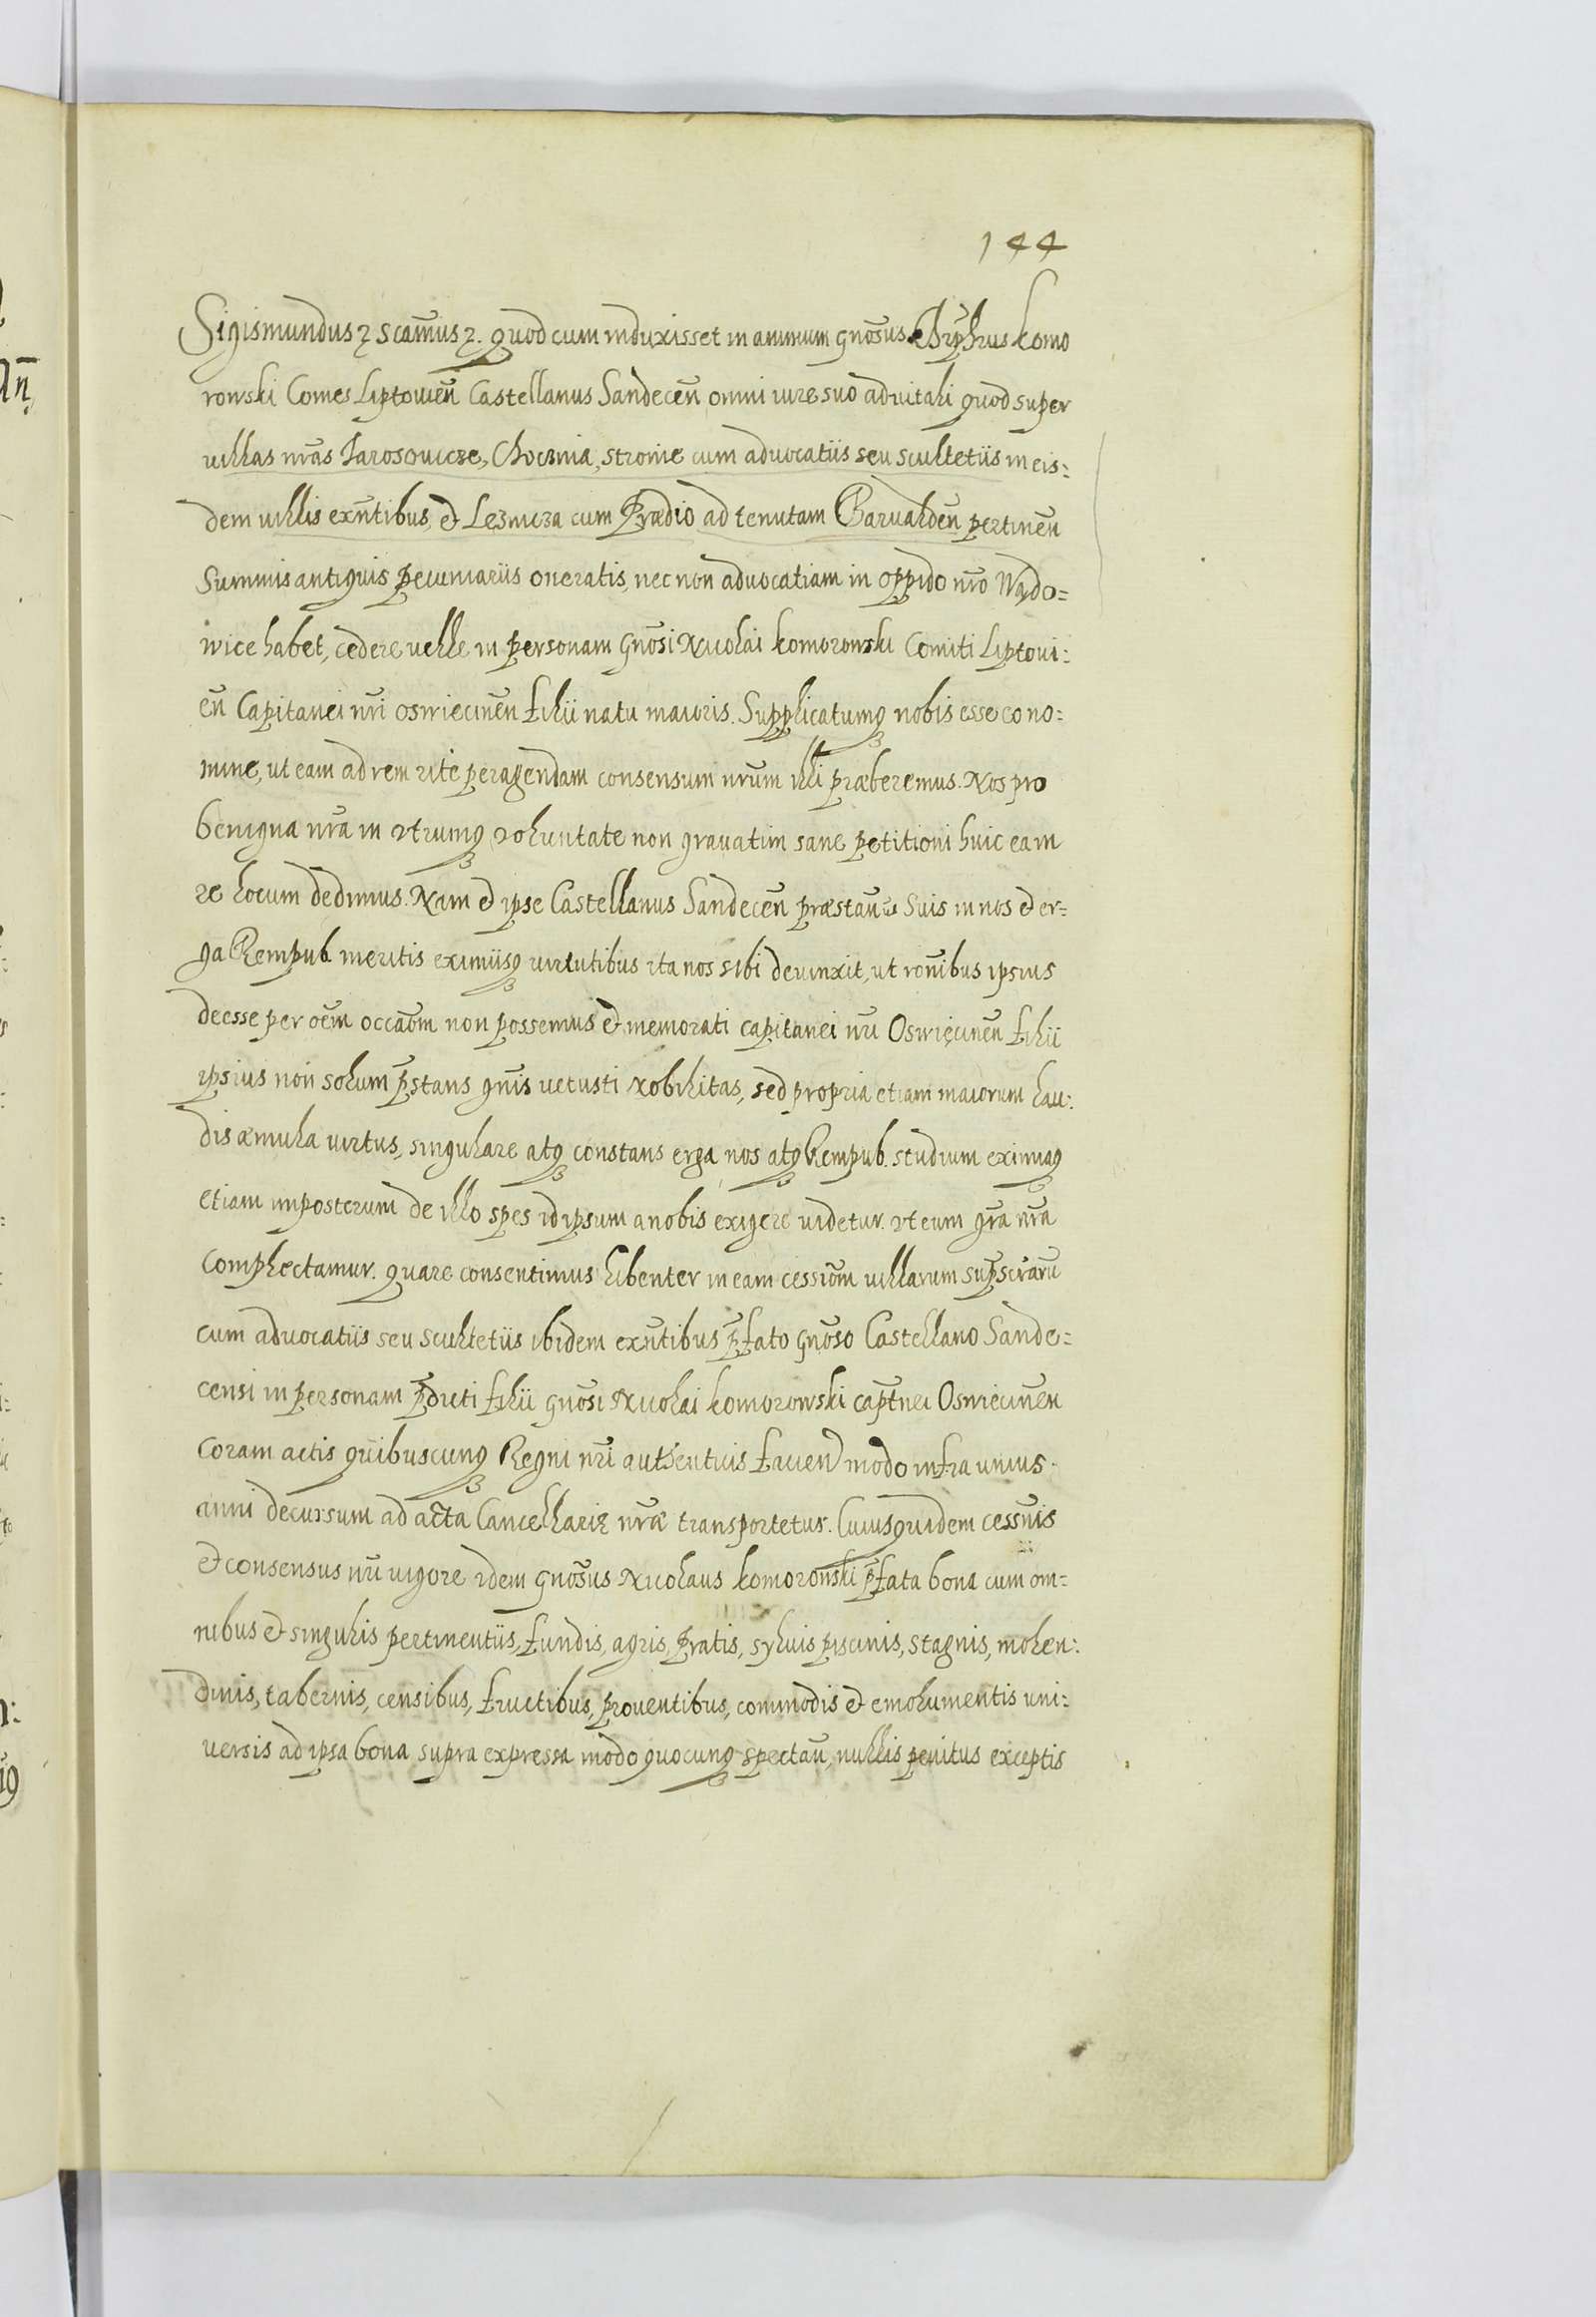 144
Sigismundus ꝛ scam̃us ꝛ. quod cum induxisset in animum gnõsus Chr̃iphus Komo
rowski Comes Liptouieñ Castellanus Sandeceñ omni iure suo aduitali quod super
uillas nr̃as Iarosouicze, Chocznia, stronie cum aduocatiis seu scultetiis in eis=
dem uillis exñtibus, et Leznicza cum Prædio ad tenutam Barualdeñ pertineñ
summis antiquis pecuniariis oneratis, nec non aduocatiam in oppido nr̃o Wado=
wice habet, cedere uelle in personam gnõsi Nicolai Komorowski Comiti Liptoui=
eñ Capitanei nr̃i oswiecineñ filii natu maioris. Supplicatumqꝫ nobis esse eo no=
mine, ut eam ad rem rite peragendam consensum nr̃um illi præberemus. Nos pro
benigna nr̃a in vtrumqꝫ voluntate non grauatim sane petitioni huic ea in
re locum dedimus. Nam et ipse Castellanus Sandeceñ præstañs suis in nos et er=
ga Rempub. meritis eximiisqꝫ uirtutibus ita nos sibi deuinxit, ut rõnibus ipsius
deesse per oẽm occãõm non possemus et memorati capitanei nr̃i Oswięcineñ filii
ipsius non solum p̃stans gñis uetusti nobilitas, sed propria etiam maiorum lau=
dis æmula uirtus, singulare atqꝫ constans erga nos atqꝫ Rempub. studium eximiaqꝫ
etiam imposterum de illo spes id ipsum a nobis exigere uidetur. vt eum gr̃a nr̃a
complectamur. quare consentimus libenter in eam cessiõm uillarum sup̃scr̃arũ
cum aduocatiis seu scultetiis ibidem exñtibus p̃fato gnõso Castellano Sande=
censi in personam p̃dicti filii gnõsi Nicolai Komorowski cap̃tnei Oswiecineñ
coram actis quibuscunqꝫ Regni nr̃i authenticis faciend modo infra unius
anni decursum ad acta Cancellarię nr̃æ transportetur. Cuiusquidem cessñis
et consensus nr̃i uigore idem gnõsus Nicolaus Komorowski p̃fata bona cum om=
nibus et singulis pertinentiis, fundis, agris, pratis, syluis piscinis, stagnis, molen=
dinis, tabernis, censibus, fructibus, prouentibus, commodis et emolumentis uni=
uersis ad ipsa bona supra expressa modo quocunqꝫ spectañ, nullis penitus exceptis